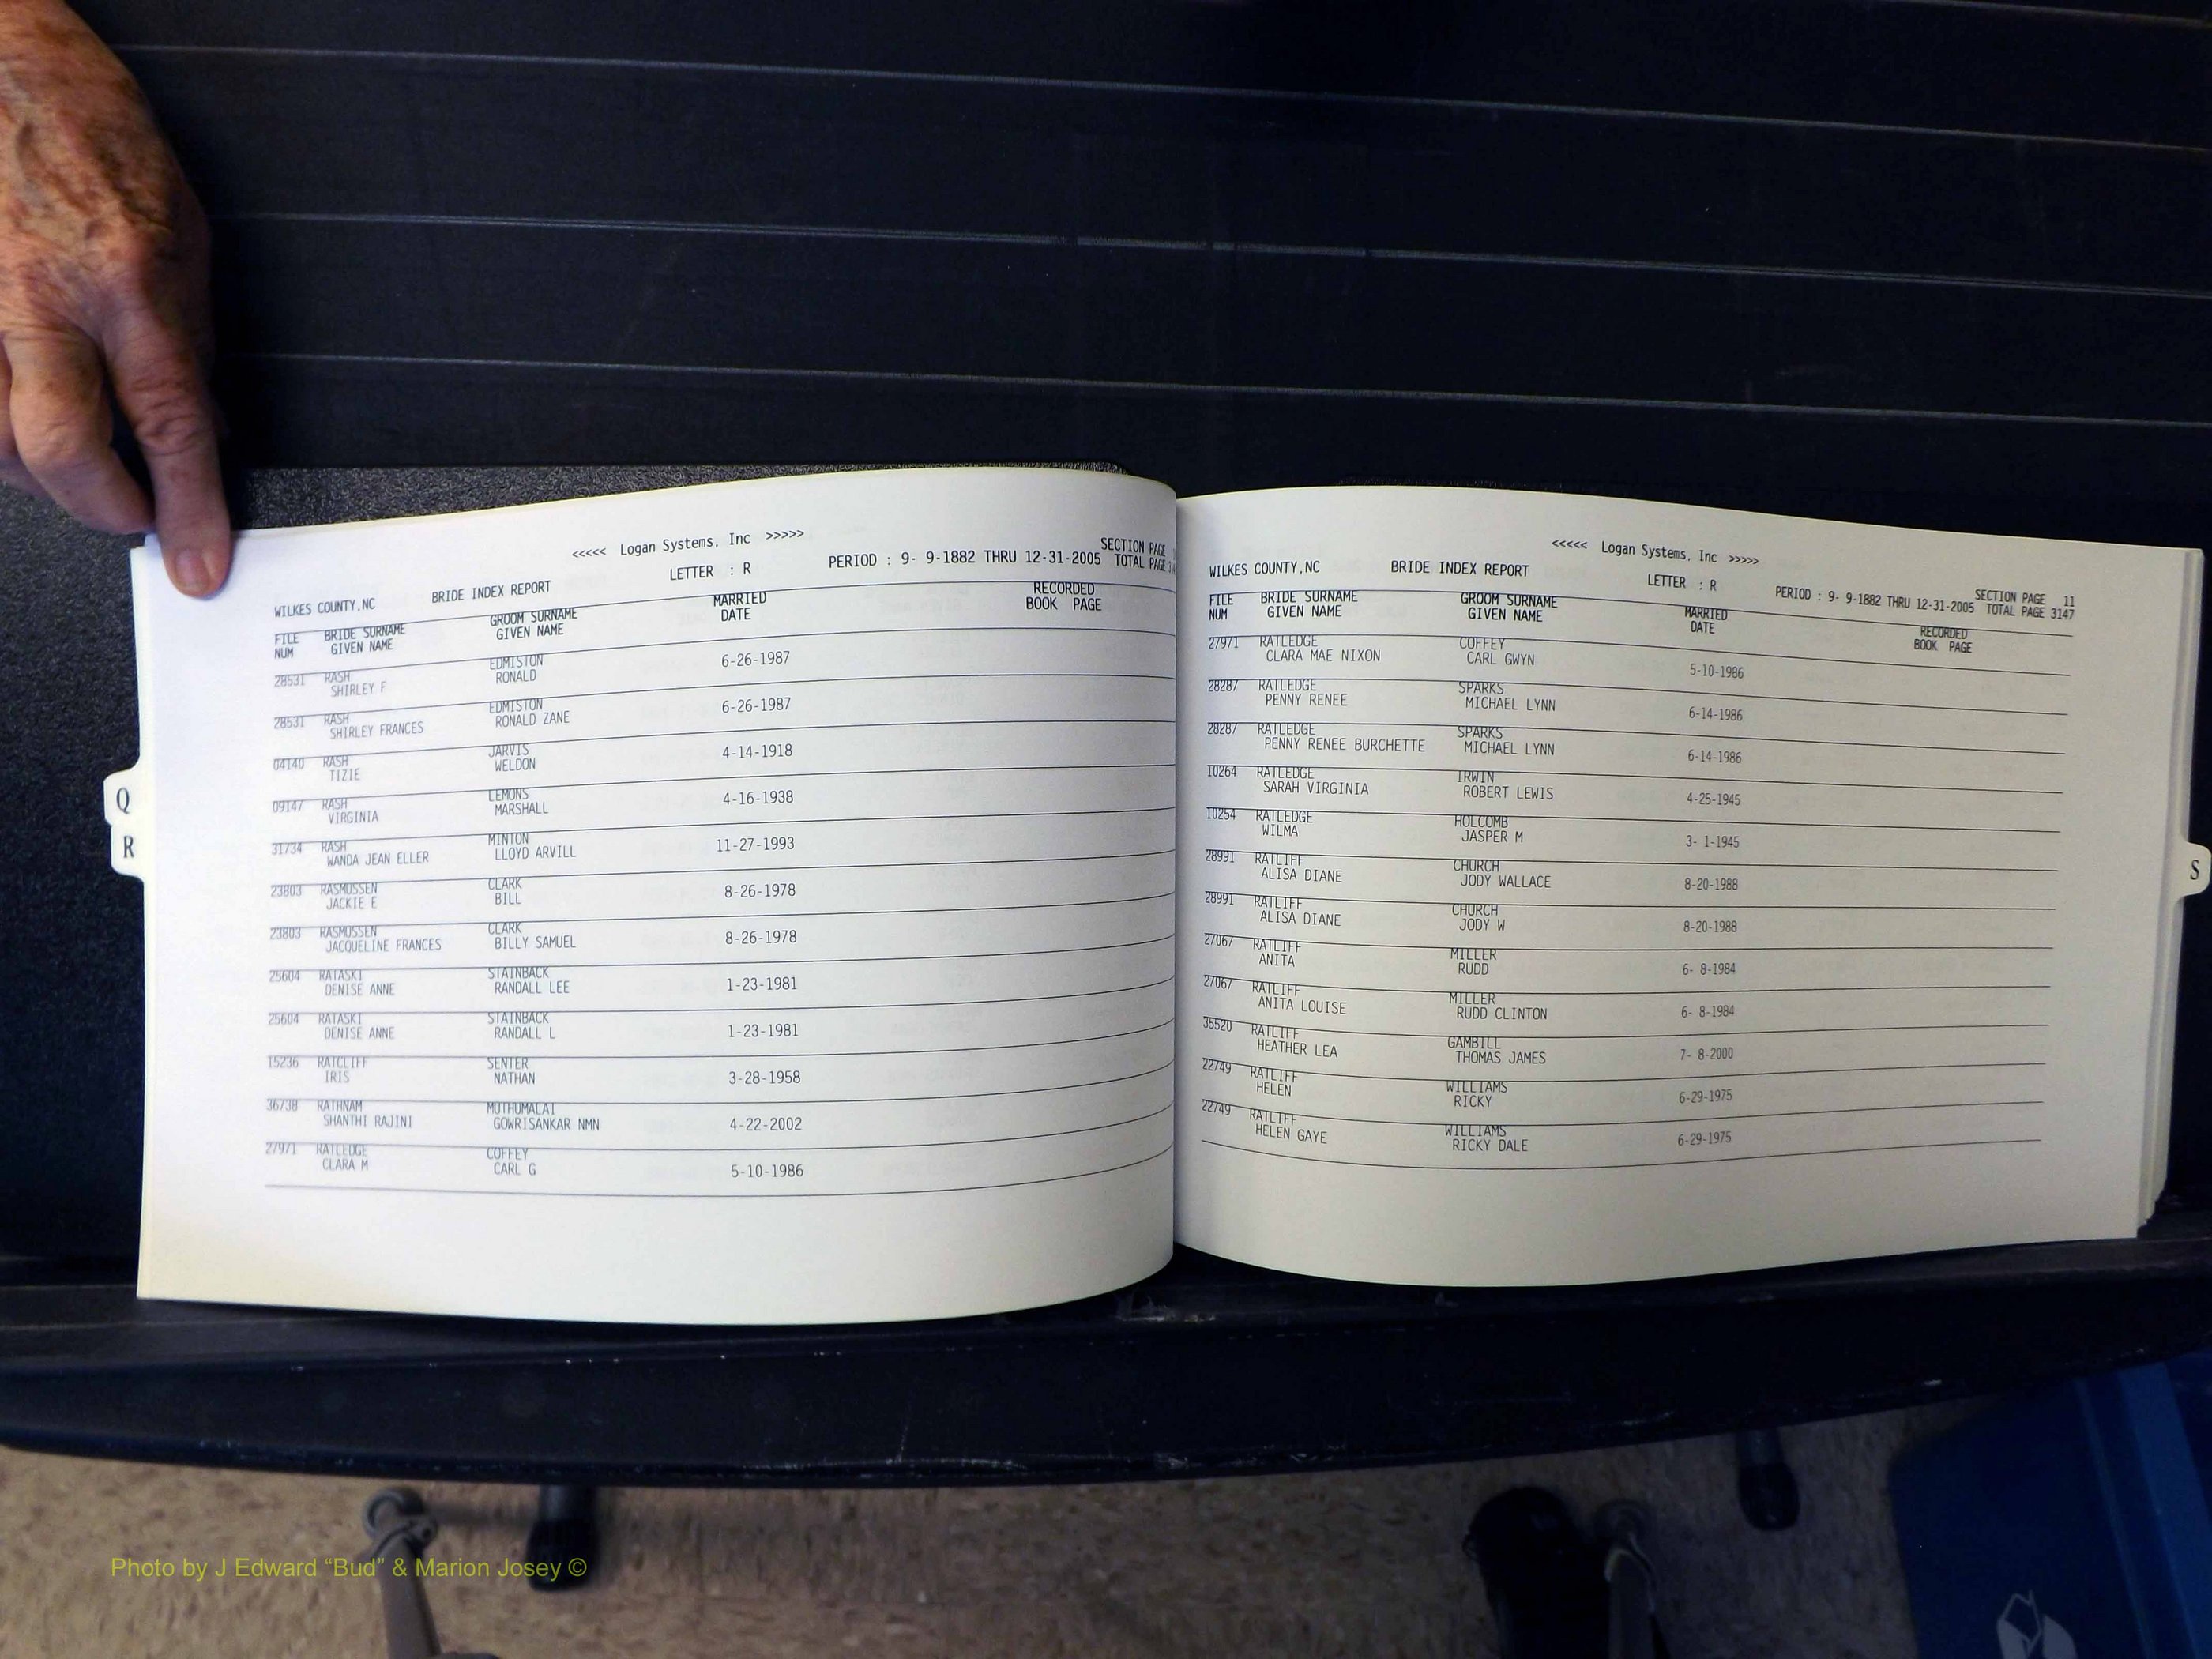 <<<<< Logan Systems, Inc >>>>>
SECTION PAGE
WILKES COUNTY,NC BRIDE INDEX REPORT LETTER : R PERIOD : 9- 9-1882 THRU 12-31-2005 TOTAL PAGE
FILE BRIDE SURNAME GROOM SURNAME MARRIED RECORDED
NUM GIVEN NAME GIVEN NAME DATE BOOK PAGE
28531 RASH EDMISTON 6-26-1987
SHIRLEY F RONALD
28531 RASH EDMISTON 6-26-1987
SHIRLEY FRANCES RONALD ZANE
04140 RASH JARVIS 4-14-1918
TIZIE WELDON
09147 RASH LEMONS 4-16-1938
VIRGINIA MARSHALL
31734 RASH MINTON 11-27-1993
WANDA JEAN ELLER LLOYD ARVILL
23803 RASMUSSEN CLARK 8-26-1978
JACKIE E BILL
23803 RASMUSSEN CLARK 8-26-1978
JACQUELINE FRANCES BILLY SAMUEL
25604 RATASKI STAINBACK 1-23-1981
DENISE ANNE RANDALL LEE
25604 RATASKI STAINBACK 1-23-1981
DENISE ANNE RANDALL L
15236 RATCLIFF SENTER 3-28-1958
IRIS NATHAN
36738 RATHNAM MUTHUMALAI 4-22-2002
SHANTHI RAJINI GOWRISANKAR NMN
27971 RATLEDGE COFFEY 5-10-1986
CLARA M CARL G
Q
R
<<<<< Logan Systems, Inc >>>>>
SECTION PAGE 11
WILKES COUNTY,NC BRIDE INDEX REPORT LETTER : R PERIOD : 9- 9-1882 THRU 12-31-2005 TOTAL PAGE 3147
FILE BRIDE SURNAME GROOM SURNAME MARRIED RECORDED
NUM GIVEN NAME GIVEN NAME DATE BOOK PAGE
27971 RATLEDGE COFFEY 5-10-1986
CLARA MAE NIXON CARL GWYN
28287 RATLEDGE SPARKS 6-14-1986
PENNY RENEE MICHAEL LYNN
28287 RATLEDGE SPARKS 6-14-1986
PENNY RENEE BURCHETTE MICHAEL LYNN
10264 RATLEDGE IRWIN 4-25-1945
SARAH VIRGINIA ROBERT LEWIS
10254 RATLEDGE HOLCOMB 3- 1-1945
WILMA JASPER M
28991 RATLIFF CHURCH 8-20-1988
ALISA DIANE JODY WALLACE
28991 RATLIFF CHURCH 8-20-1988
ALISA DIANE JODY W
27067 RATLIFF MILLER 6- 8-1984
ANITA RUDD
27067 RATLIFF MILLER 6- 8-1984
ANITA LOUISE RUDD CLINTON
35520 RATLIFF GAMBILL 7- 8-2000
HEATHER LEA THOMAS JAMES
22749 RATLIFF WILLIAMS 6-29-1975
HELEN RICKY
22749 RATLIFF WILLIAMS 6-29-1975
HELEN GAYE RICKY DALE
S
Photo by J Edward “Bud” & Marion Josey ©